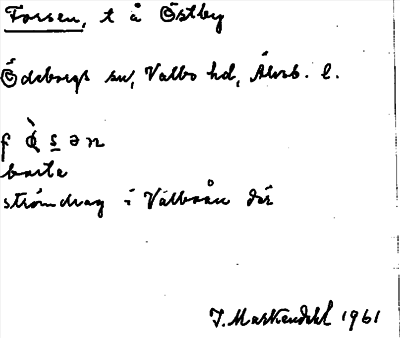 Forsen, t å Östby
Ödeborgs sn, Valbo hd, Älvsb. l.
fo̖s̱ən
borta
strömdrag i Valboån där
J. Markendahl 1961